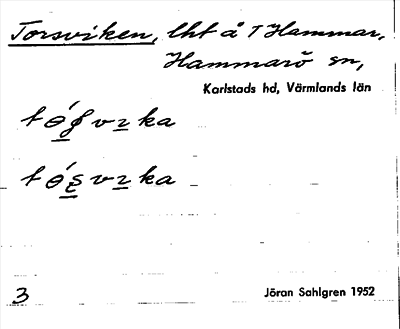 Torsviken, lht å THammar,
Hammarö sn,
Karlstads hd, Värmlands län
3
Jöran Sahlgren 1952